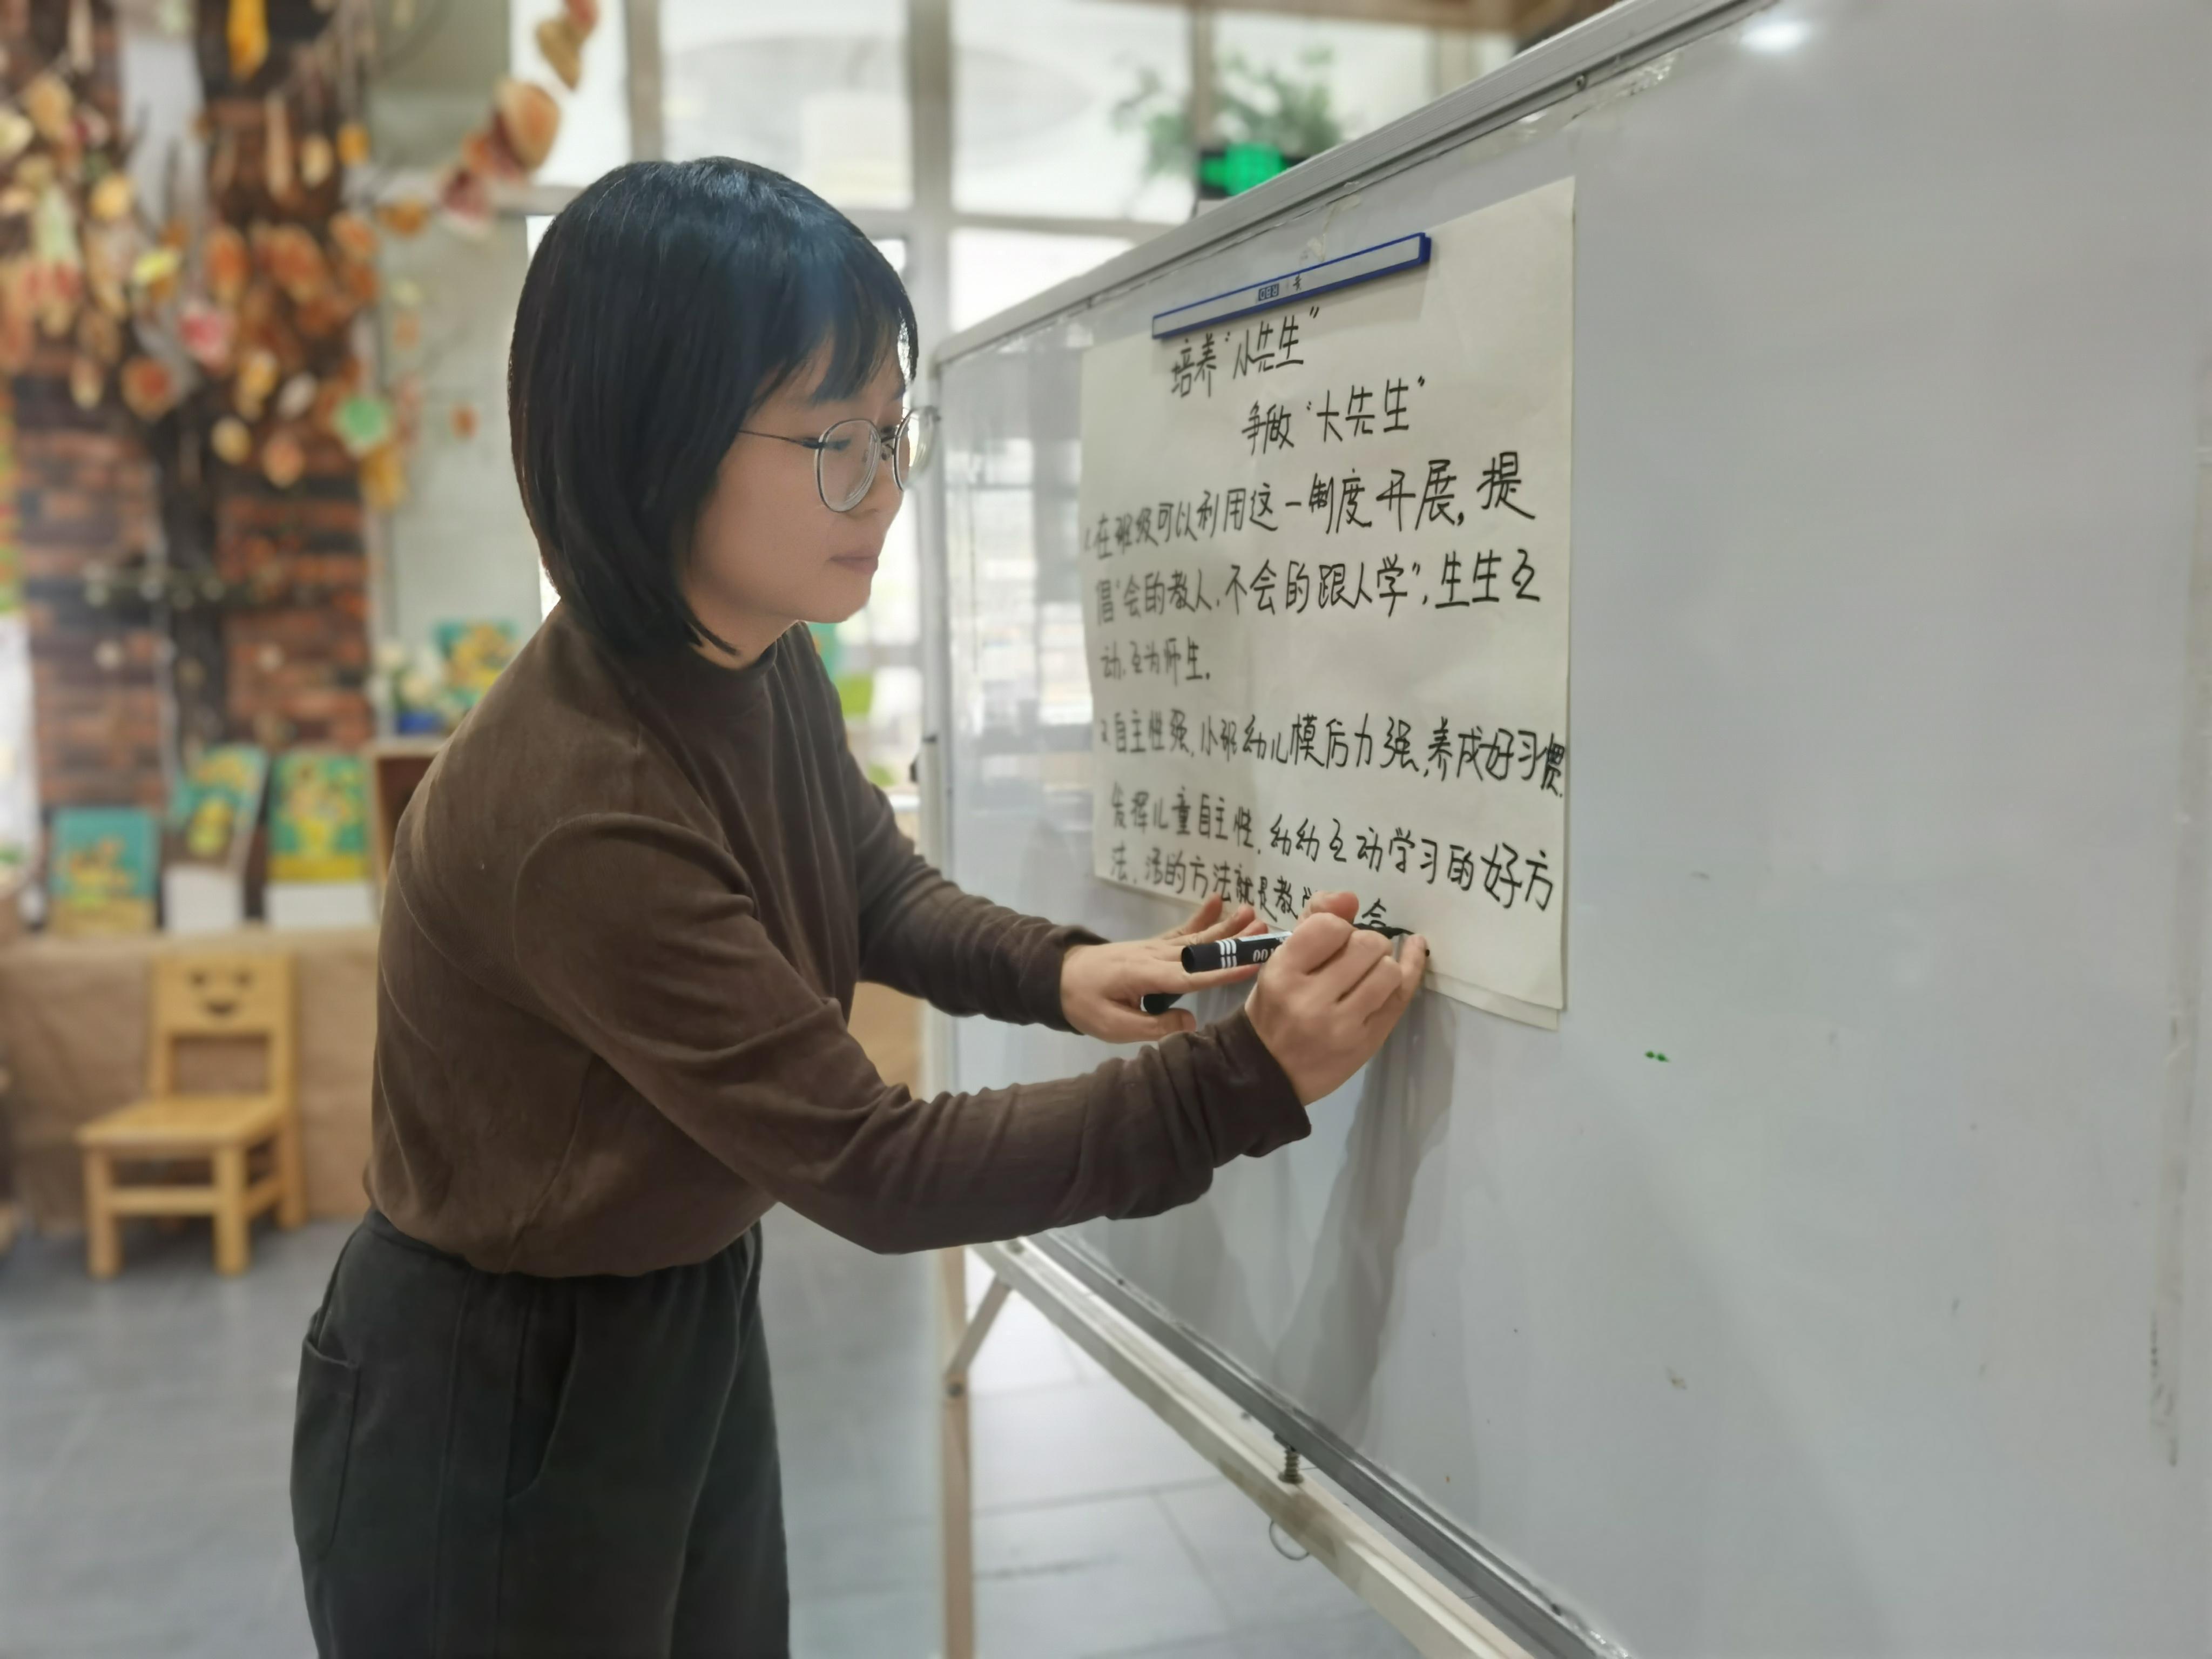 培养“小先生”
争做“大先生”
1.在班级可以利用这一制度开展,提
倡“会的教人,不会的跟人学”,生生互
动,互为师生。
2.自主性强,小班幼儿模仿力强,养成好习惯.
发挥儿童自主性,幼幼互动学习的好方
法,活的方法就是教学 合